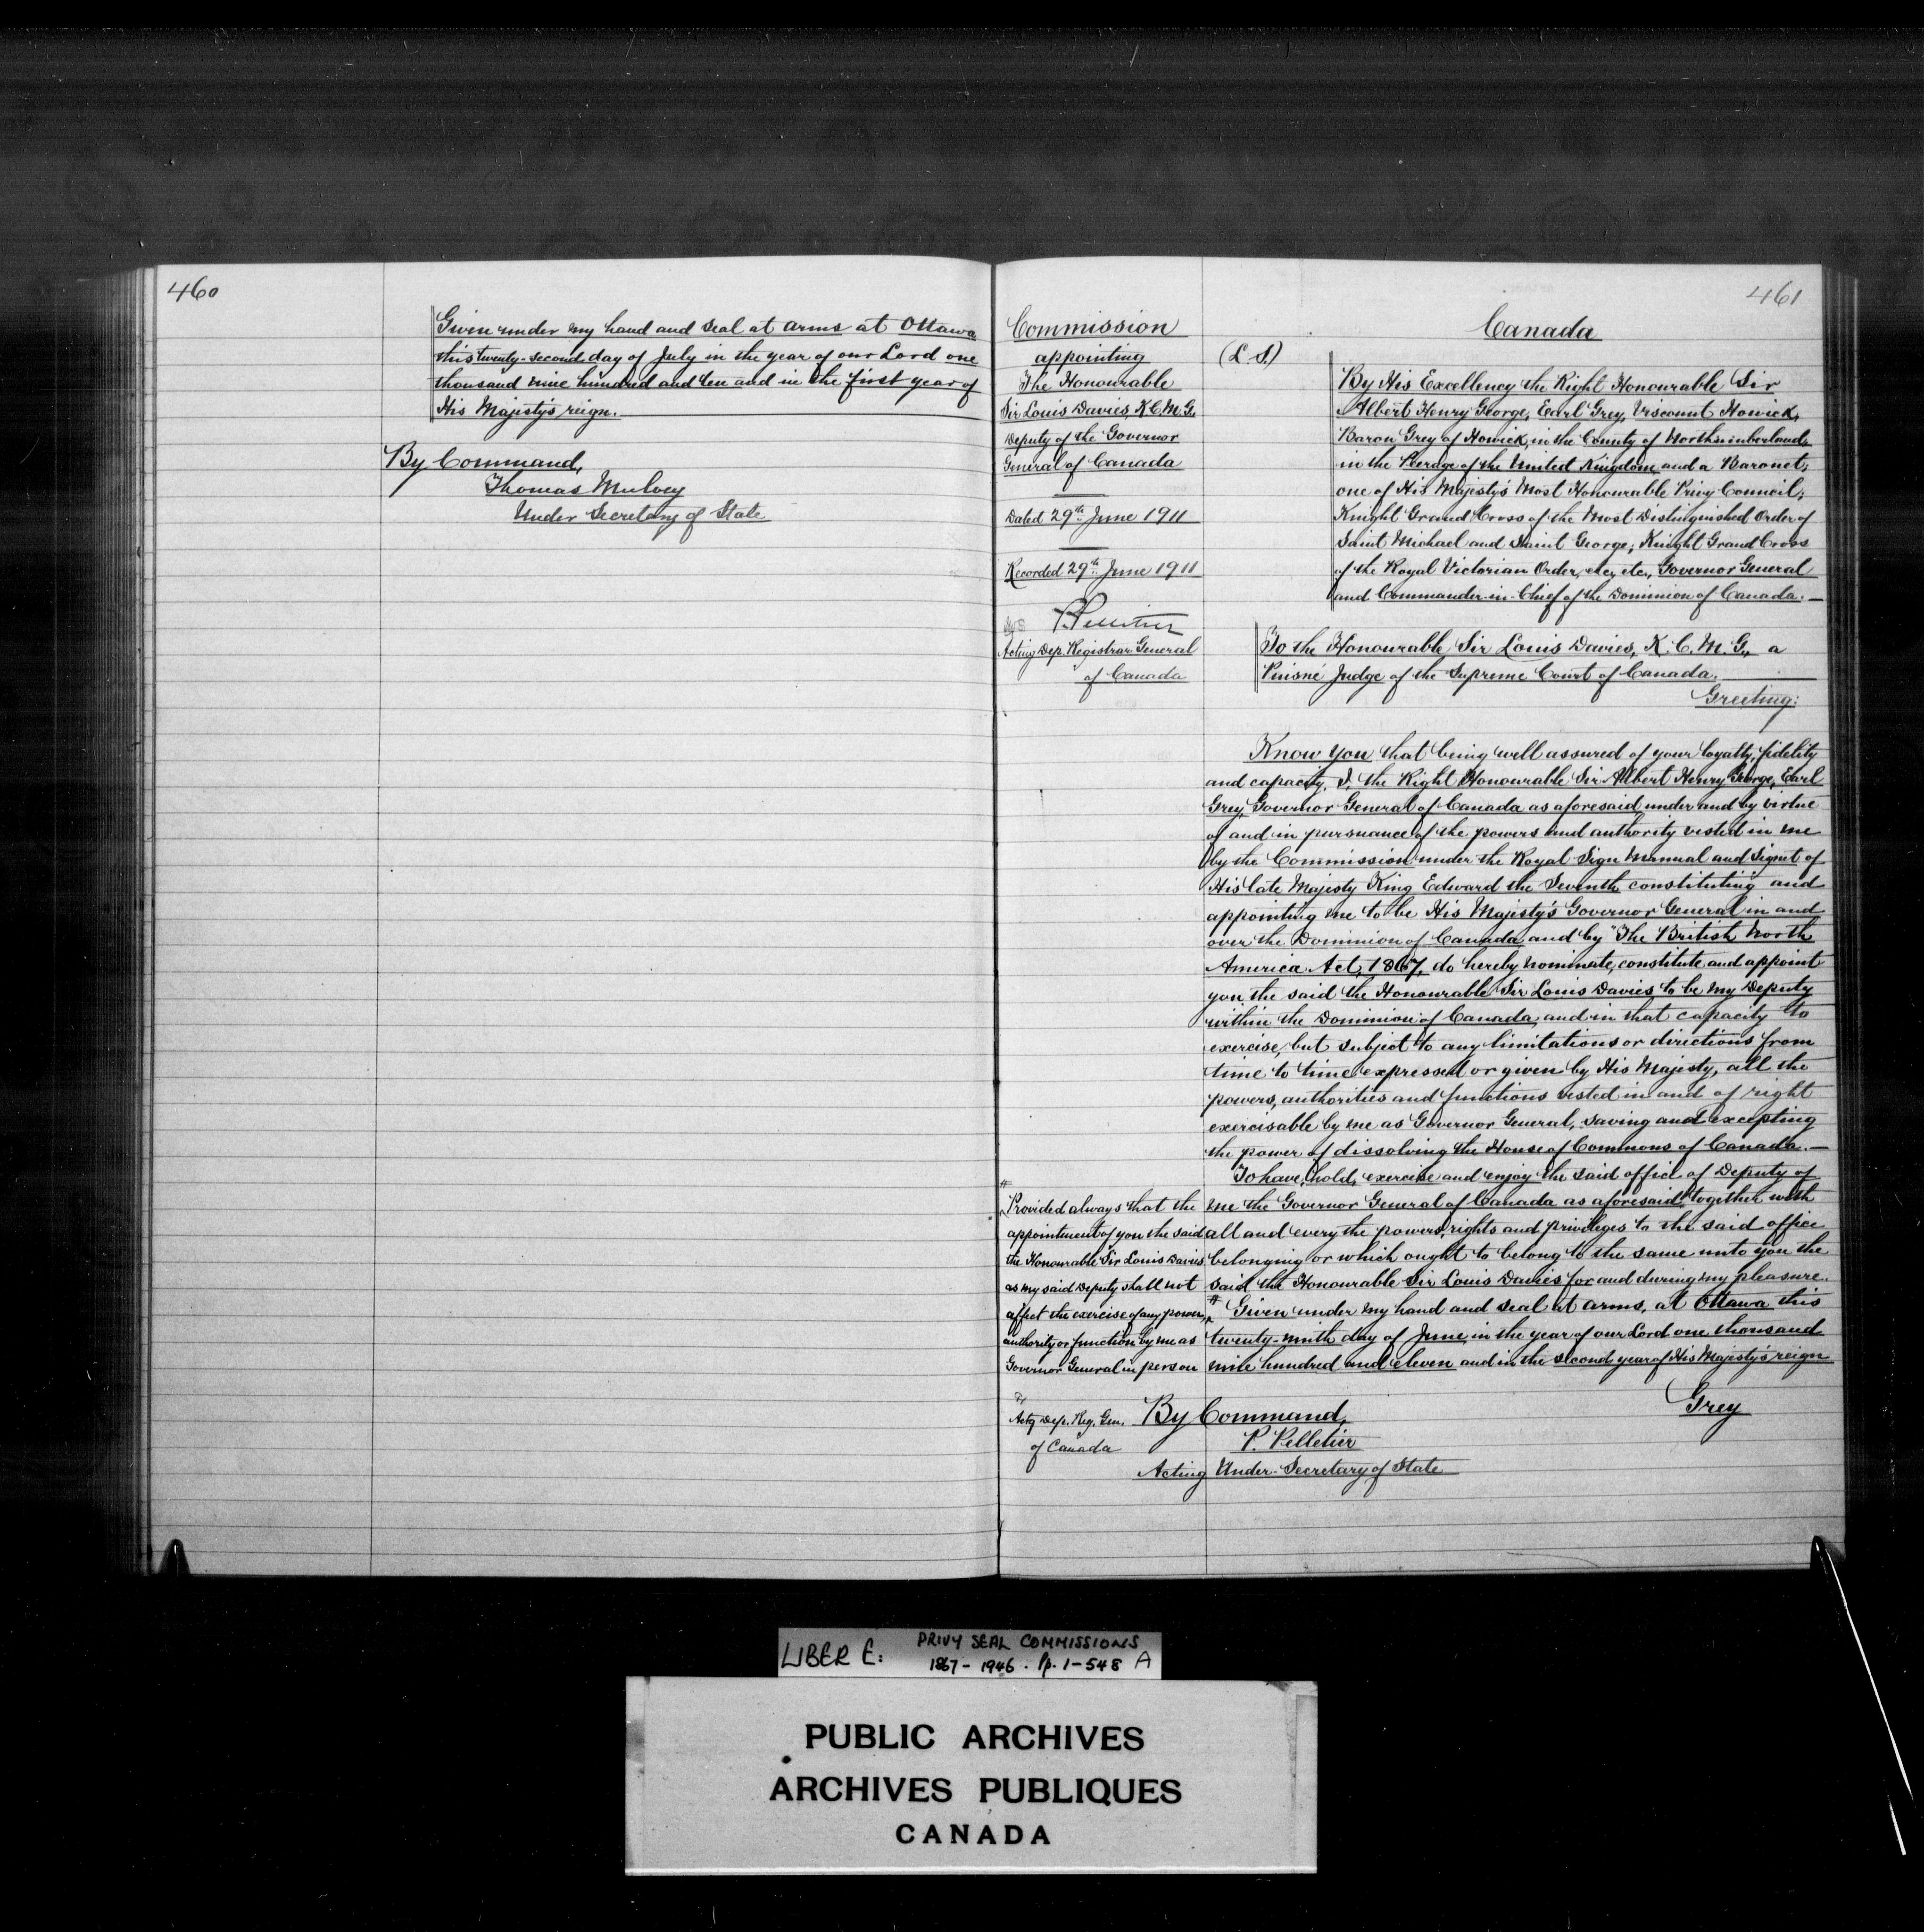 460
Given under my hand and seal at arms at Ottawa
this twenty-second day of July in the year of our Lord one
thousand nine hundred and ten and in the first year of
His Majesty's reign.
By Command,
Thomas Mulvey
Under Secretary of State
461
Commission
appointing
The Honourable
Sir Louis Davies, K.C.M.G.
Deputy of the Governor
General of Canada
Dated 29th June 1911
Recorded 29th June 1911
P. Pelletier
Acting Dep. Registrar General
of Canada
Canada
(L.S.)
By His Excellency the Right Honourable Sir
Albert Henry George, Earl Grey, Viscount Howick,
Baron Grey of Howick, in the County of Northumberland,
in the Peerage of the United Kingdom and a Baronet;
one of His Majesty's Most Honourable Privy Council;
Knight Grand Cross of the Most Distinguished Order of
Saint Michael and Saint George; Knight Grand Cross
of the Royal Victorian Order, etc, etc., Governor General
and Commander-in-Chief of the Dominion of Canada.—
To the Honourable Sir Louis Davies, K.C.M.G., a
Puisné Judge of the Supreme Court of Canada.
Greeting:
Know You that being well assured of your loyalty, fidelity
and capacity, I, the Right Honourable Sir Albert Henry George, Earl
Grey, Governor General of Canada as aforesaid, under and by virtue
of and in pursuance of the powers and authority vested in me
by the Commission under the Royal Sign Manual and Signet of
His late Majesty King Edward the Seventh constituting and
appointing me to be His Majesty's Governor General in and
over the Dominion of Canada and by "The British North
America Act, 1867, do hereby nominate, constitute and appoint
you the said the Honourable Sir Louis Davies to be my Deputy
within the Dominion of Canada, and in that capacity to
exercise, but subject to any limitations or directions from
time to time expressed or given by His Majesty, all the
powers, authorities and functions vested in and of right
exercisable by me as Governor General, saving and excepting
the power of dissolving the House of Commons of Canada.—
To have, hold, exercise and enjoy the said office of Deputy of
me the Governor General of Canada as aforesaid, together with
all and every the powers, rights and privileges to the said office
belonging or which ought to belong to the same unto you the
said the Honourable Sir Louis Davies for and during my pleasure.
# Given under my hand and seal at arms, at Ottawa this
twenty-ninth day of June in the year of our Lord one thousand
nine hundred and eleven and in the second year of His Majesty's reign
#
Provided always that the
appointment of you the said
the Honourable Sir Louis Davies
as my said Deputy shall not
affect the exercise of any power,
authority or function by me as
Governor General in person
Actg Dep. Reg. Gen.
of Canada
Grey
By Command,
P. Pelletier
Acting Under-Secretary of State
LIBER E: PRIVY SEAL COMMISSIONS
1867-1946. Pp. 1-548 A
PUBLIC ARCHIVES
ARCHIVES PUBLIQUES
CANADA